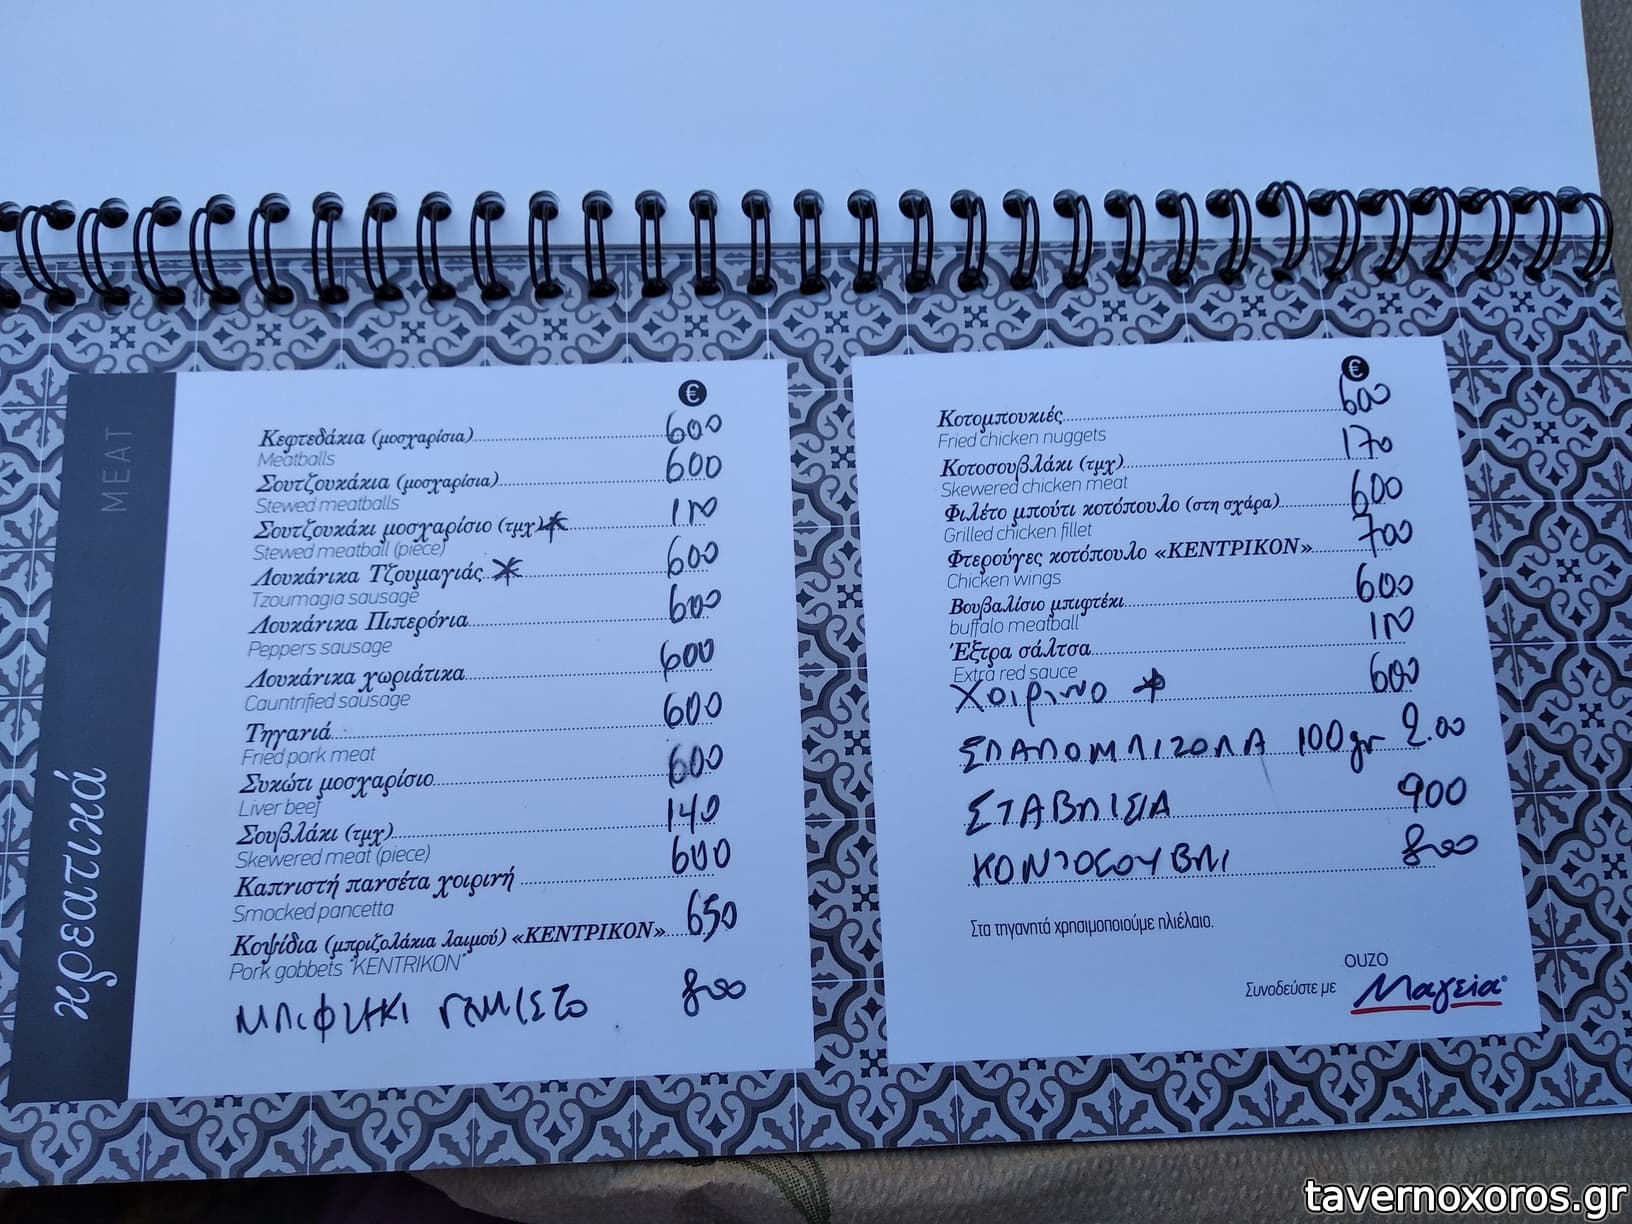 κρεατικά
MEAT
€
Κεφτεδάκια (μοσχαρίσια) 600
Meatballs
Σουτζουκάκια (μοσχαρίσια) 600
Stewed meatballs
Σουτζουκάκι μοσχαρίσιο (τμχ)*
Stewed meatball (piece)
Λουκάνικα Τζουμαγιάς * 600
Tzoumagia sausage
Λουκάνικα Πιπερόνια 600
Peppers sausage
Λουκάνικα χωριάτικα 600
Cauntrified sausage
Τηγανιά 600
Fried pork meat
Συκώτι μοσχαρίσιο 600
Liver beef
Σουβλάκι (τμχ) 140
Skewered meat (piece)
Καπνιστή πανσέτα χοιρινή 600
Smocked pancetta
Κοψίδια (μπριζολάκια λαιμού) «ΚΕΝΤΡΙΚΟΝ» 650
Pork gobbets "KENTRIKON"
ΜΠΙΦΤΕΚΙ ΓΕΜΙΣΤΟ 800
€
Κοτομπουκιές 600
Fried chicken nuggets
Κοτοσουβλάκι (τμχ) 170
Skewered chicken meat
Φιλέτο μπούτι κοτόπουλο (στη σχάρα) 600
Grilled chicken fillet
Φτερούγες κοτόπουλο «ΚΕΝΤΡΙΚΟΝ» 700
Chicken wings
Βουβαλίσιο μπιφτέκι 600
buffalo meatball
Έξτρα σάλτσα
Extra red sauce
Χοιρινο * 600
ΣΠΑΛΟΜΠΙΖΟΛΑ 100gr 2.00
ΣΤΑΒΛΙΣΙΑ 900
ΚΟΝΤΟΣΟΥΒΛΙ 800
Στα τηγανητά χρησιμοποιούμε ηλιέλαιο.
Συνοδεύστε με OUZO Μαγεία®
tavernoxoros.gr